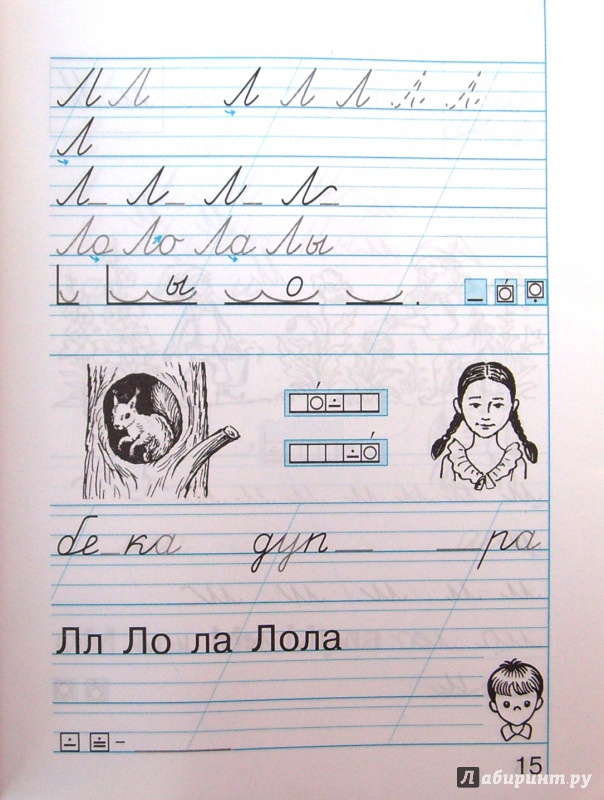 Л Л Л Л Л Л Л
Л
Л_ Л_ Л_ Л_
Ло Ло Ла Лы
ы о .
бе_ка дуп_ _ра
Лл Ло ла Лола
–
15
Лабиринт.ру